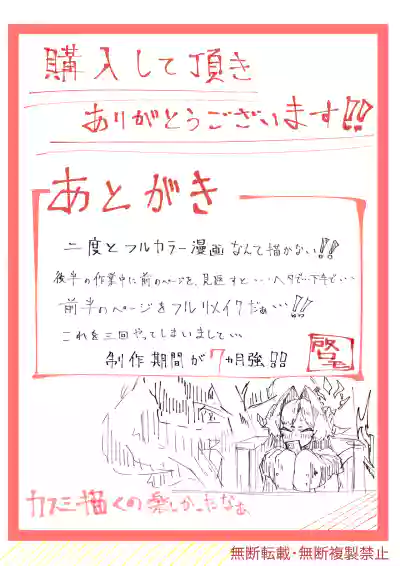 購入して頂き
ありがとうございます!!
あとがき
二度とフルカラー漫画なんて描かない!!
後半の作業中に前のページを見返すと・・・ヘタで…下手で…
前半のページをフルリメイクだぁ…!!
これを三回やってしまいまして…
制作期間が7ヵ月強!!
カスミ描くの楽しかったなぁ
無断転載・無断複製禁止